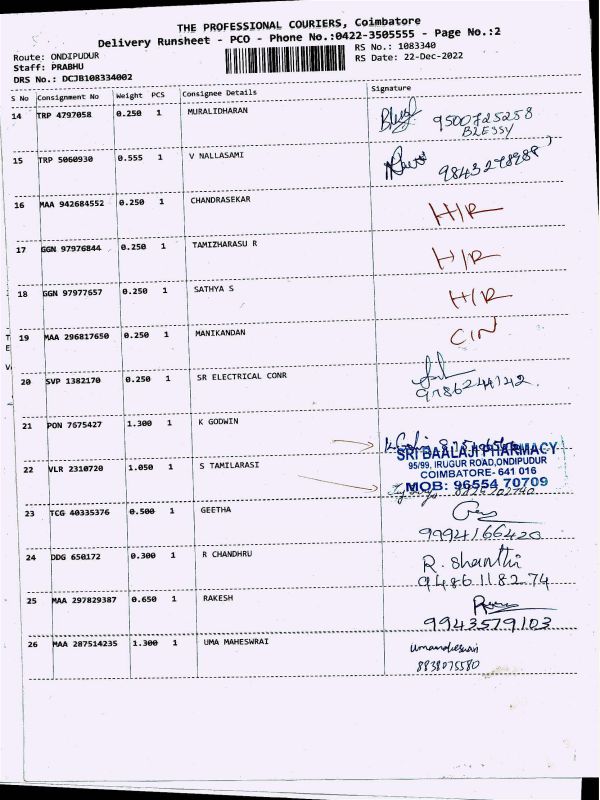 THE PROFESSIONAL COURIERS, Coimbatore
Delivery Runsheet - PCO - Phone No.:0422-3505555 - Page No.:2
Route: ONDIPUDUR
RS No.: 1083340
Staff: PRABHU
RS Date: 22-Dec-2022
DRS No.: DCJB108334002
S No Consignment No Weight PCS Consignee Details Signature
14 TRP 4797058 0.250 1 MURALIDHARAN 9500725258
BLESSY
15 TRP 5060930 0.555 1 V NALLASAMI
16 MAA 942684552 0.250 1 CHANDRASEKAR H/R
17 GGN 97976844 0.250 1 TAMIZHARASU R H/R
18 GGN 97977657 0.250 1 SATHYA S H/R
19 MAA 296817650 0.250 1 MANIKANDAN CIN
20 SVP 1382170 0.250 1 SR ELECTRICAL CONR
9786244142.
21 PON 7675427 1.300 1 K GODWIN
SRI BAALAJI PHARMACY
95/99, IRUGUR ROAD,ONDIPUDUR
22 VLR 2310720 1.050 1 S TAMILARASI
COIMBATORE- 641 016
MOB: 96554 70709
23 TCG 40335376 0.500 1 GEETHA
9994166420
24 DDG 650172 0.300 1 R CHANDHRU R. Shanthi
9486118274
25 MAA 297829387 0.650 1 RAKESH
9943579103
26 MAA 287514235 1.300 1 UMA MAHESWRAI Umamaheswari
8838075580